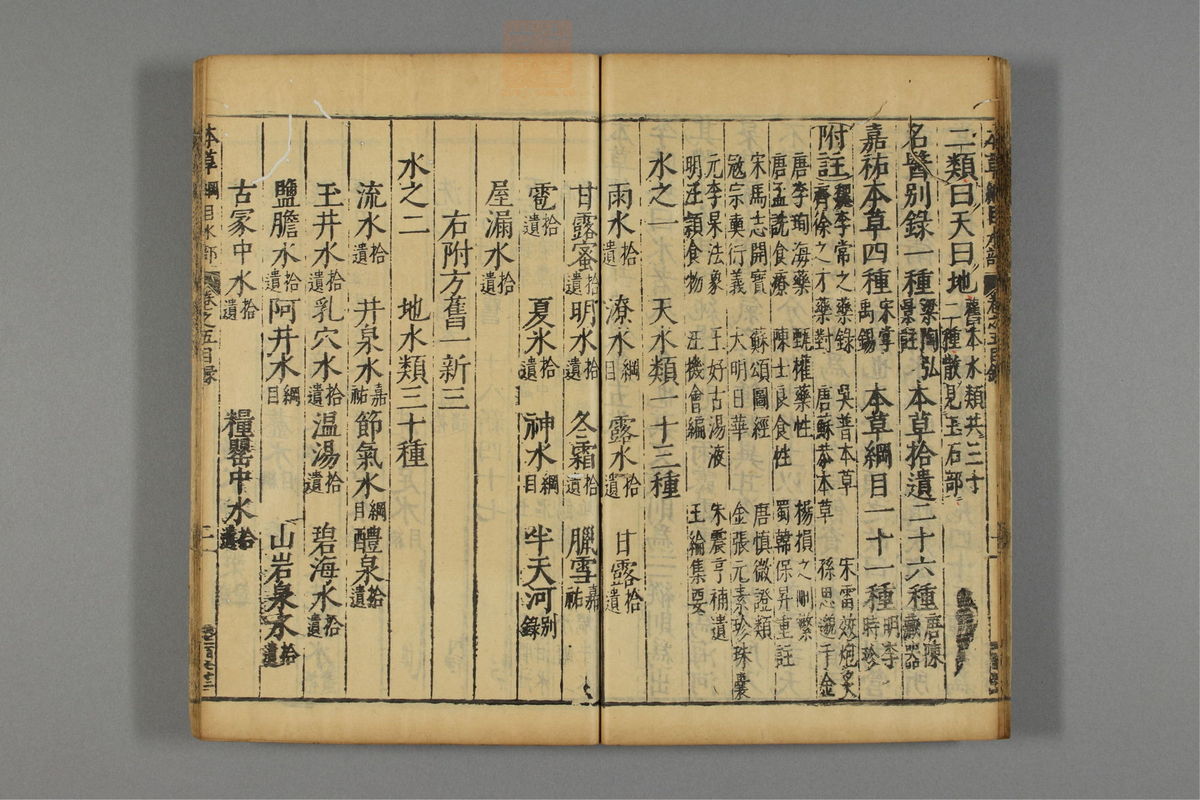 二類曰天曰地舊本水類共三十二種散見玉石部
名醫别錄一種梁陶弘景註 本草拾遺二十六種唐陳藏器
嘉祐本草四種宋掌禹錫 本草綱目一十一種明李時珍
附註魏李當之藥錄 吳普本草 宋雷斅炮炙
齊徐之才藥對 唐蘇恭本草 孫思邈千金
唐李珣海藥 甄權藥性 楊損之刪繁
唐孟詵食療 陳士良食性 蜀韓保昇重註
宋馬志開寶 蘇頌圖經 唐慎微證類
寇宗奭衍義 大明日華 金張元素珍珠囊
元李杲法象 王好古湯液 朱震亨補遺
明汪頴食物 汪機會編 王綸集要
水之一 天水類一十三種
雨水拾遺 潦水綱目 露水拾遺 甘露拾遺
甘露蜜拾遺 明水拾遺 冬霜拾遺 臘雪嘉祐
雹拾遺 夏氷拾遺 神水綱目 半天河别錄
屋漏水拾遺
右附方舊一新三
水之二 地水類三十種
流水拾遺 井泉水嘉祐 節氣水綱目 醴泉拾遺
玉井水拾遺 乳穴水拾遺 温湯拾遺 碧海水拾遺
鹽膽水拾遺 阿井水綱目 山岩泉水拾遺
古冢中水拾遺 糧罌中水拾遺
本草綱目水部 卷之五目錄 二